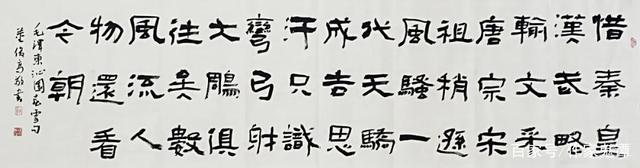 惜秦皇
漢武略
輸文采
唐宗宋
祖稍遜
風騷一
代天驕
成吉思
汗只識
彎弓射
大鵰俱
往矣數
風流人
物還看
今朝
毛澤東沁園春雪句
百家号